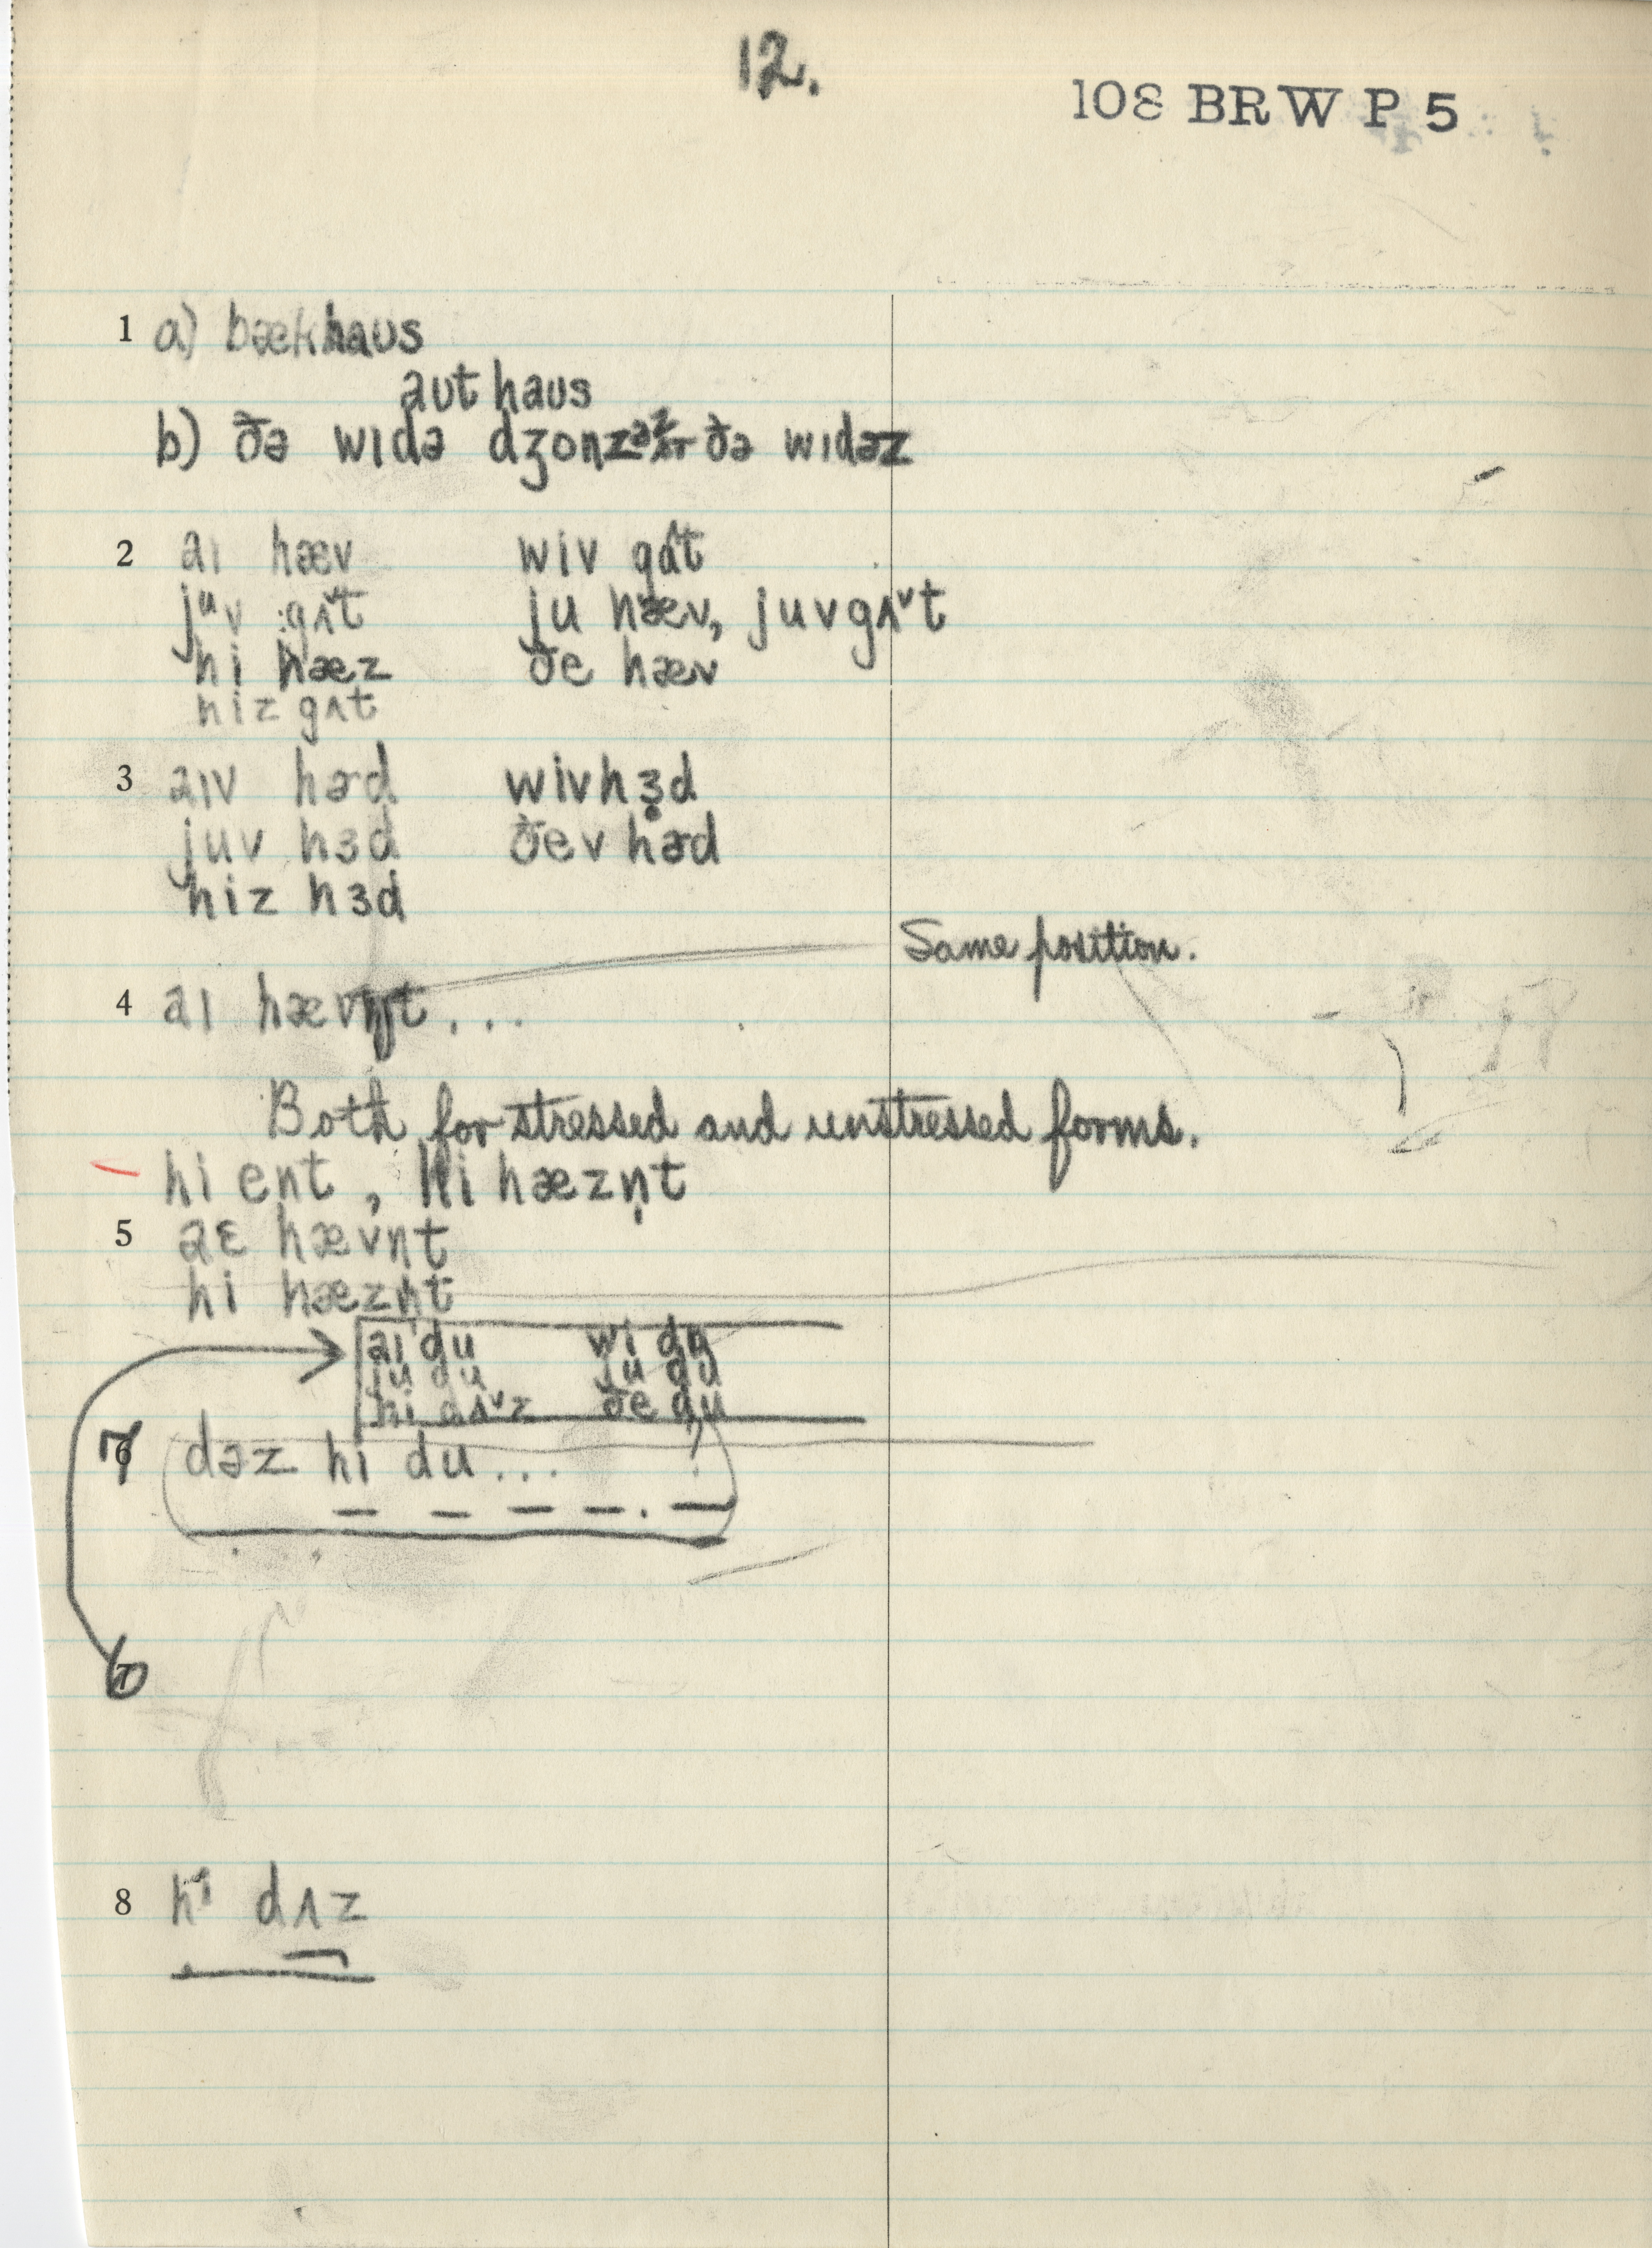 12.
108 BRW P 5
1 a) bækhaus
aut haus
b) ðə wɪdə dʒonz ðə wɪdəz
2 aɪ hæv wiv gʌ^t
juv gʌ^t ju hæv, juvgʌˇt
hi hæz ðe hæv
hiz gʌt
3 aɪv hɚd wivhɜ̣d
juv hɜd ðev hɚd
hiz hɜd
Same position.
4 aɪ hævn̩t . . .
Both for stressed and unstressed forms.
hi ent, hi hæzn̩t
5 aɛ hævn̩t
hi hæzn̩t
aɪ du wi du
ju du ju du
hi dʌˇz ðe du
7 dəz hi du . . .
6
8 hi dʌz